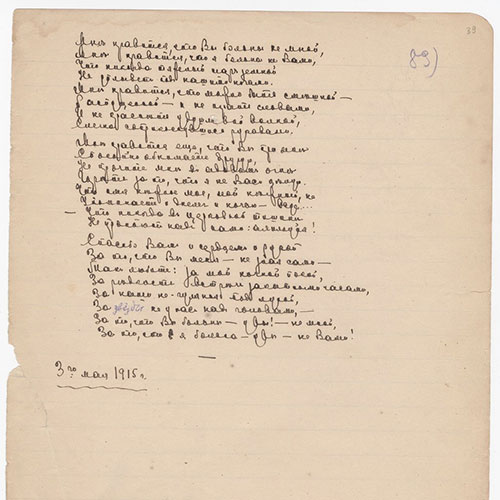 89
89)
Мнѣ нравится, что Вы больны не мной,
Мнѣ нравится, что я больна не Вами,
Что никогда тяжелый шаръ земной
Не уплыветъ подъ нашими ногами.
Мнѣ нравится, что можно быть смѣшной —
Распущенной — и не играть словами,
И не краснѣть удушливой волной,
Слегка соприкоснувшись рукавами.
Мнѣ нравится еще, что Вы при мнѣ
Спокойно обнимаете другую,
Не прочите мнѣ въ адовомъ огнѣ
Горѣть за то, что я не Васъ цѣлую.
Что имя нѣжное мое, мой нѣжный, не
Упоминаете ни днемъ ни ночью — всуе...
— Что никогда въ церковной тишинѣ
Не пропоютъ надъ нами: аллилуйя!
Спасибо Вамъ и сердцемъ и рукой
За то, что Вы меня — не зная сами —
Такъ любите: за мой ночной покой,
За рѣдкость встрѣчъ закатными часами,
За наши не-гулянья подъ луной,
За звѣзды не у насъ надъ головами, —
За то, что Вы больны — увы! — не мной,
За то, что я больна — увы — не Вами!
3го мая 1915 г.